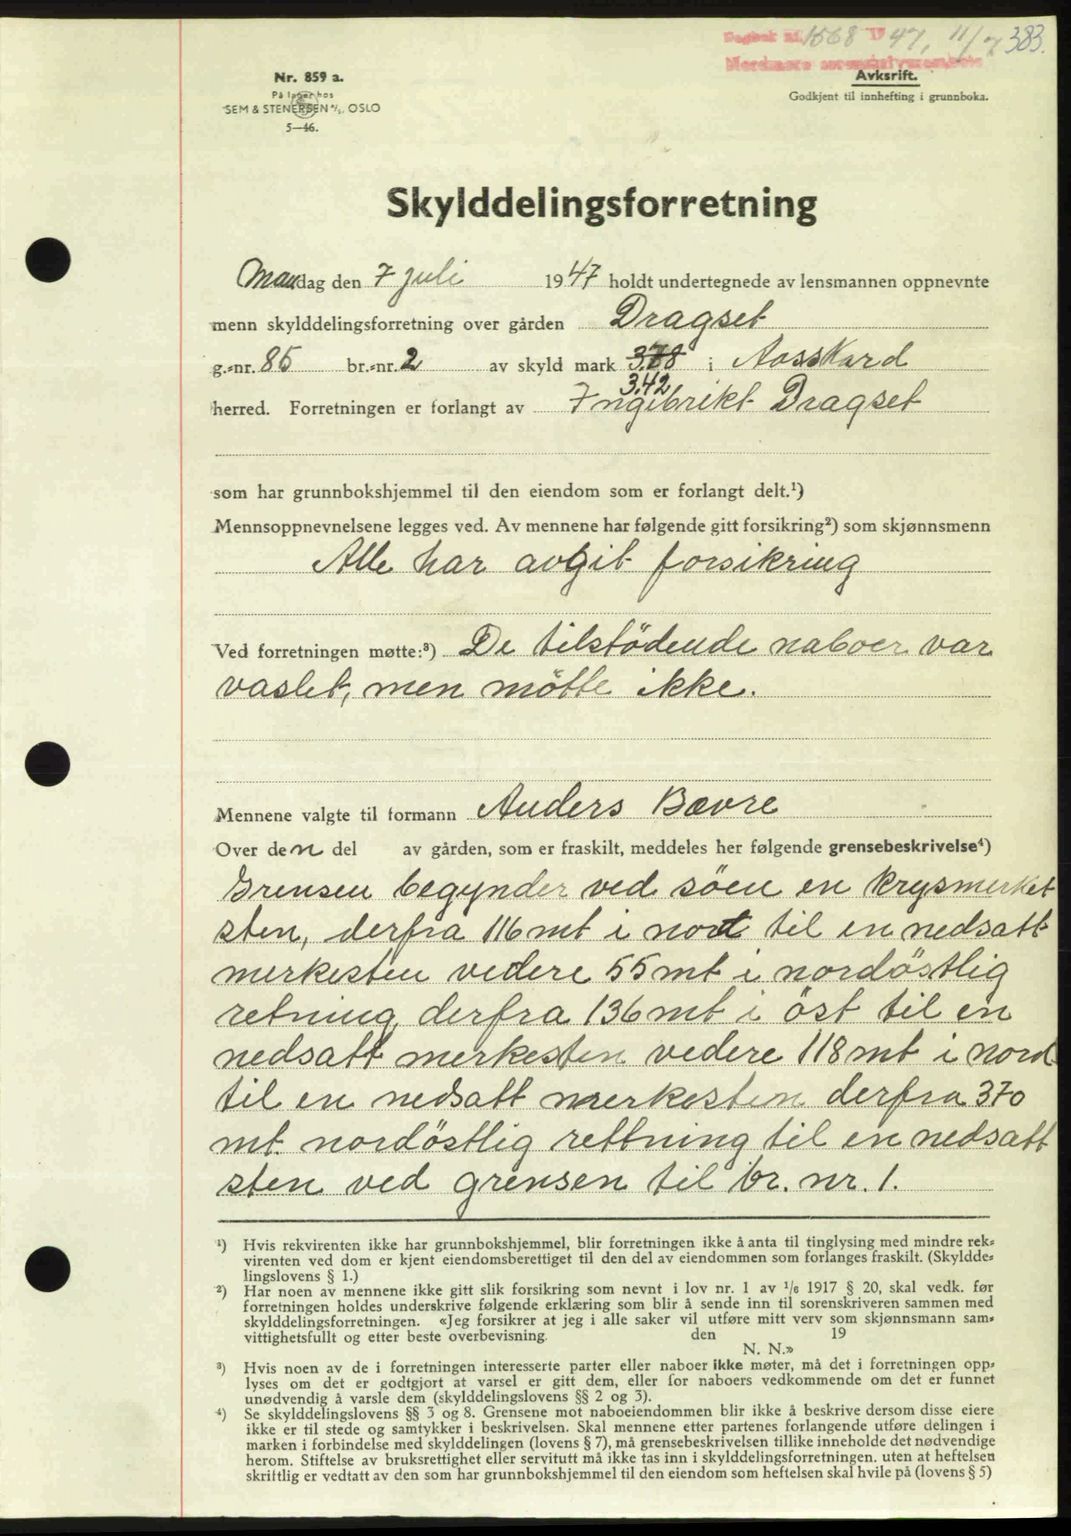 Dagbok nr. 1568 1947, 11/7 383.
Nordmøre sorenskriverembete
Nr. 859 a.
På lager hos
SEM & STENERSEN A/S, OSLO
5—46.
Avksrift.
Godkjent til innhefting i grunnboka.
Skylddelingsforretning
Mandag den 7 juli 1947 holdt undertegnede av lensmannen oppnevnte
menn skylddelingsforretning over gården Dragset
g.-nr. 85 br.-nr. 2 av skyld mark 3.78 i Aasskard
3.42
herred. Forretningen er forlangt av Ingebrikt Dragset
som har grunnbokshjemmel til den eiendom som er forlangt delt.¹)
Mennsoppnevnelsene legges ved. Av mennene har følgende gitt forsikring²) som skjønnsmenn
Alle har avgit forsikring
Ved forretningen møtte:³) De tilstödende naboer var
vaslet, men mötte ikke.
Mennene valgte til formann Anders Bævre
Over den del av gården, som er fraskilt, meddeles her følgende grensebeskrivelse⁴)
Grensen begynder ved söen en krysmerket
sten, derfra 116 mt i nord til en nedsatt
merkesten videre 55 mt i nordöstlig
retning derfra 136 mt i öst til en
nedsatt merkesten videre 118 mt i nord
til en nedsatt merkesten derfra 370
mt. nordöstlig rettning til en nedsatt
sten ved grensen til br. nr. 1.
¹) Hvis rekvirenten ikke har grunnbokshjemmel, blir forretningen ikke å anta til tinglysing med mindre rek-
virenten ved dom er kjent eiendomsberettiget til den del av eiendommen som forlanges fraskilt. (Skyldde-
lingslovens § 1.)
²) Har noen av mennene ikke gitt slik forsikring som nevnt i lov nr. 1 av 1/6 1917 § 20, skal vedk. før
forretningen holdes underskrive følgende erklæring som blir å sende inn til sorenskriveren sammen med
skylddelingsforretningen. «Jeg forsikrer at jeg i alle saker vil utføre mitt verv som skjønnsmann sam-
vittighetsfullt og etter beste overbevisning. den 19
N. N.»
³) Hvis noen av de i forretningen interesserte parter eller naboer ikke møter, må det i forretningen opp-
lyses om det er godtgjort at varsel er gitt dem, eller for naboers vedkommende om det er funnet
unødvendig å varsle dem (skylddelingslovens §§ 2 og 3).
⁴) Se skylddelingslovens §§ 3 og 8. Grensene mot naboeiendommen blir ikke å beskrive dersom disse eiere
ikke er til stede og samtykker i beskrivelsen. Skal mennene etter partenes forlangende utføre delingen i
marken i forbindelse med skylddelingen (lovens § 7), må grensebeskrivelsen tillike inneholde det nødvendige
herom. Stiftelse av bruksrettighet eller servitutt må ikke tas inn i skylddelingsforretningen, uten at heftelsen
skriftlig er vedtatt av den som har grunnbokshjemmel til den eiendom som heftelsen skal hvile på (lovens § 5)